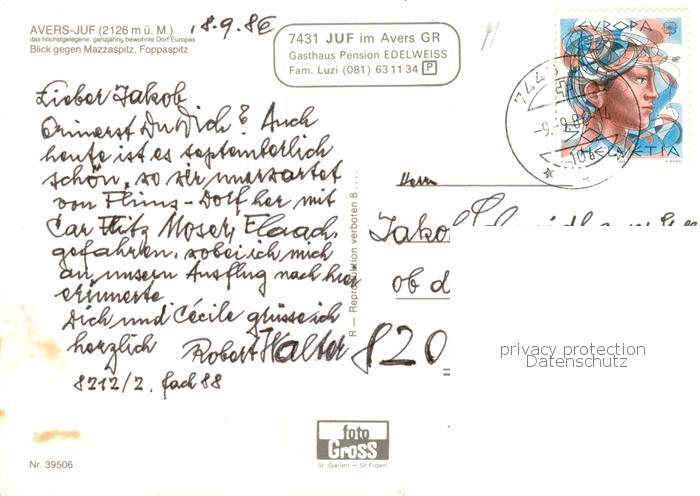 AVERS-JUF (2126 m ü. M.)
das höchstgelegene, ganzjährig bewohnte Dorf Europas
Blick gegen Mazzaspitz, Foppaspitz
8.9.86
7431 JUF im Avers GR
Gasthaus Pension EDELWEISS
Fam. Luzi (081) 63 11 34 P
EVROPA
HELVETIA
Lieber Jakob
Erinerst Du Dich? Auch
heute ist es septemberlich
schön, so wir unerwartet
von Flims-Dorf her mit
Car Fritz Moser, Flaach,
gefahren, wobei ich mich
an unsern Ausflug nach hier
erinnerte.
Dich und Cécile grüsse ich
herzlich Robert Halter
8212/2. Fach 88
R — Reproduktion verboten 8 ....
Herrn
Jakob
ob d
820
privacy protection
Datenschutz
foto
Gross
St. Gallen – St. Fiden
Nr. 39506